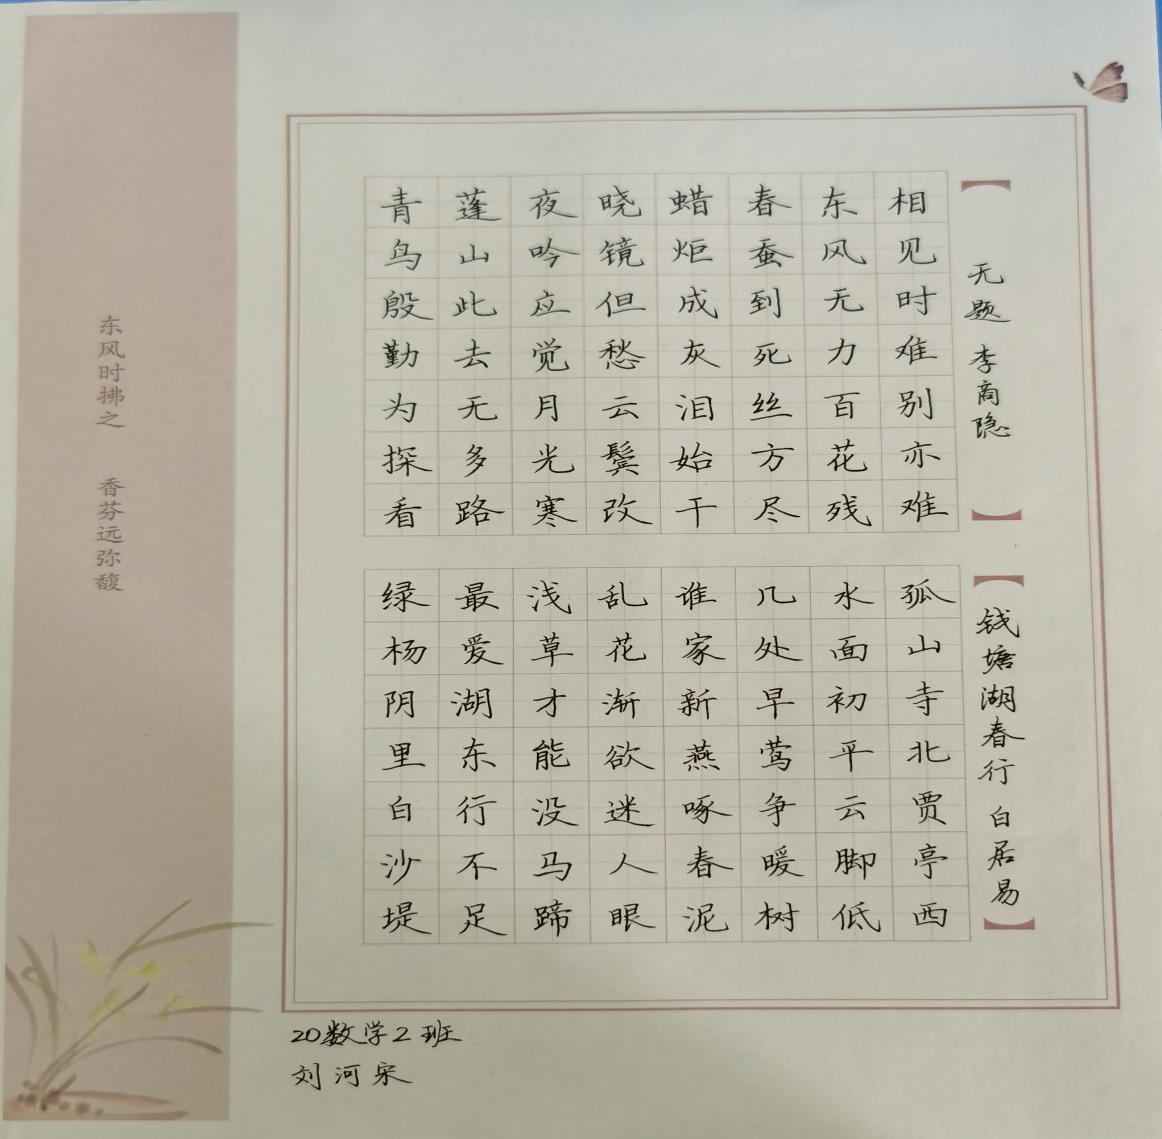 无题 李商隐
相见时难别亦难
东风无力百花残
春蚕到死丝方尽
蜡炬成灰泪始干
晓镜但愁云鬓改
夜吟应觉月光寒
蓬山此去无多路
青鸟殷勤为探看
钱塘湖春行 白居易
孤山寺北贾亭西
水面初平云脚低
几处早莺争暖树
谁家新燕啄春泥
乱花渐欲迷人眼
浅草才能没马蹄
最爱湖东行不足
绿杨阴里白沙堤
东风时拂之 香芬远弥馥
20数学2班
刘河宋